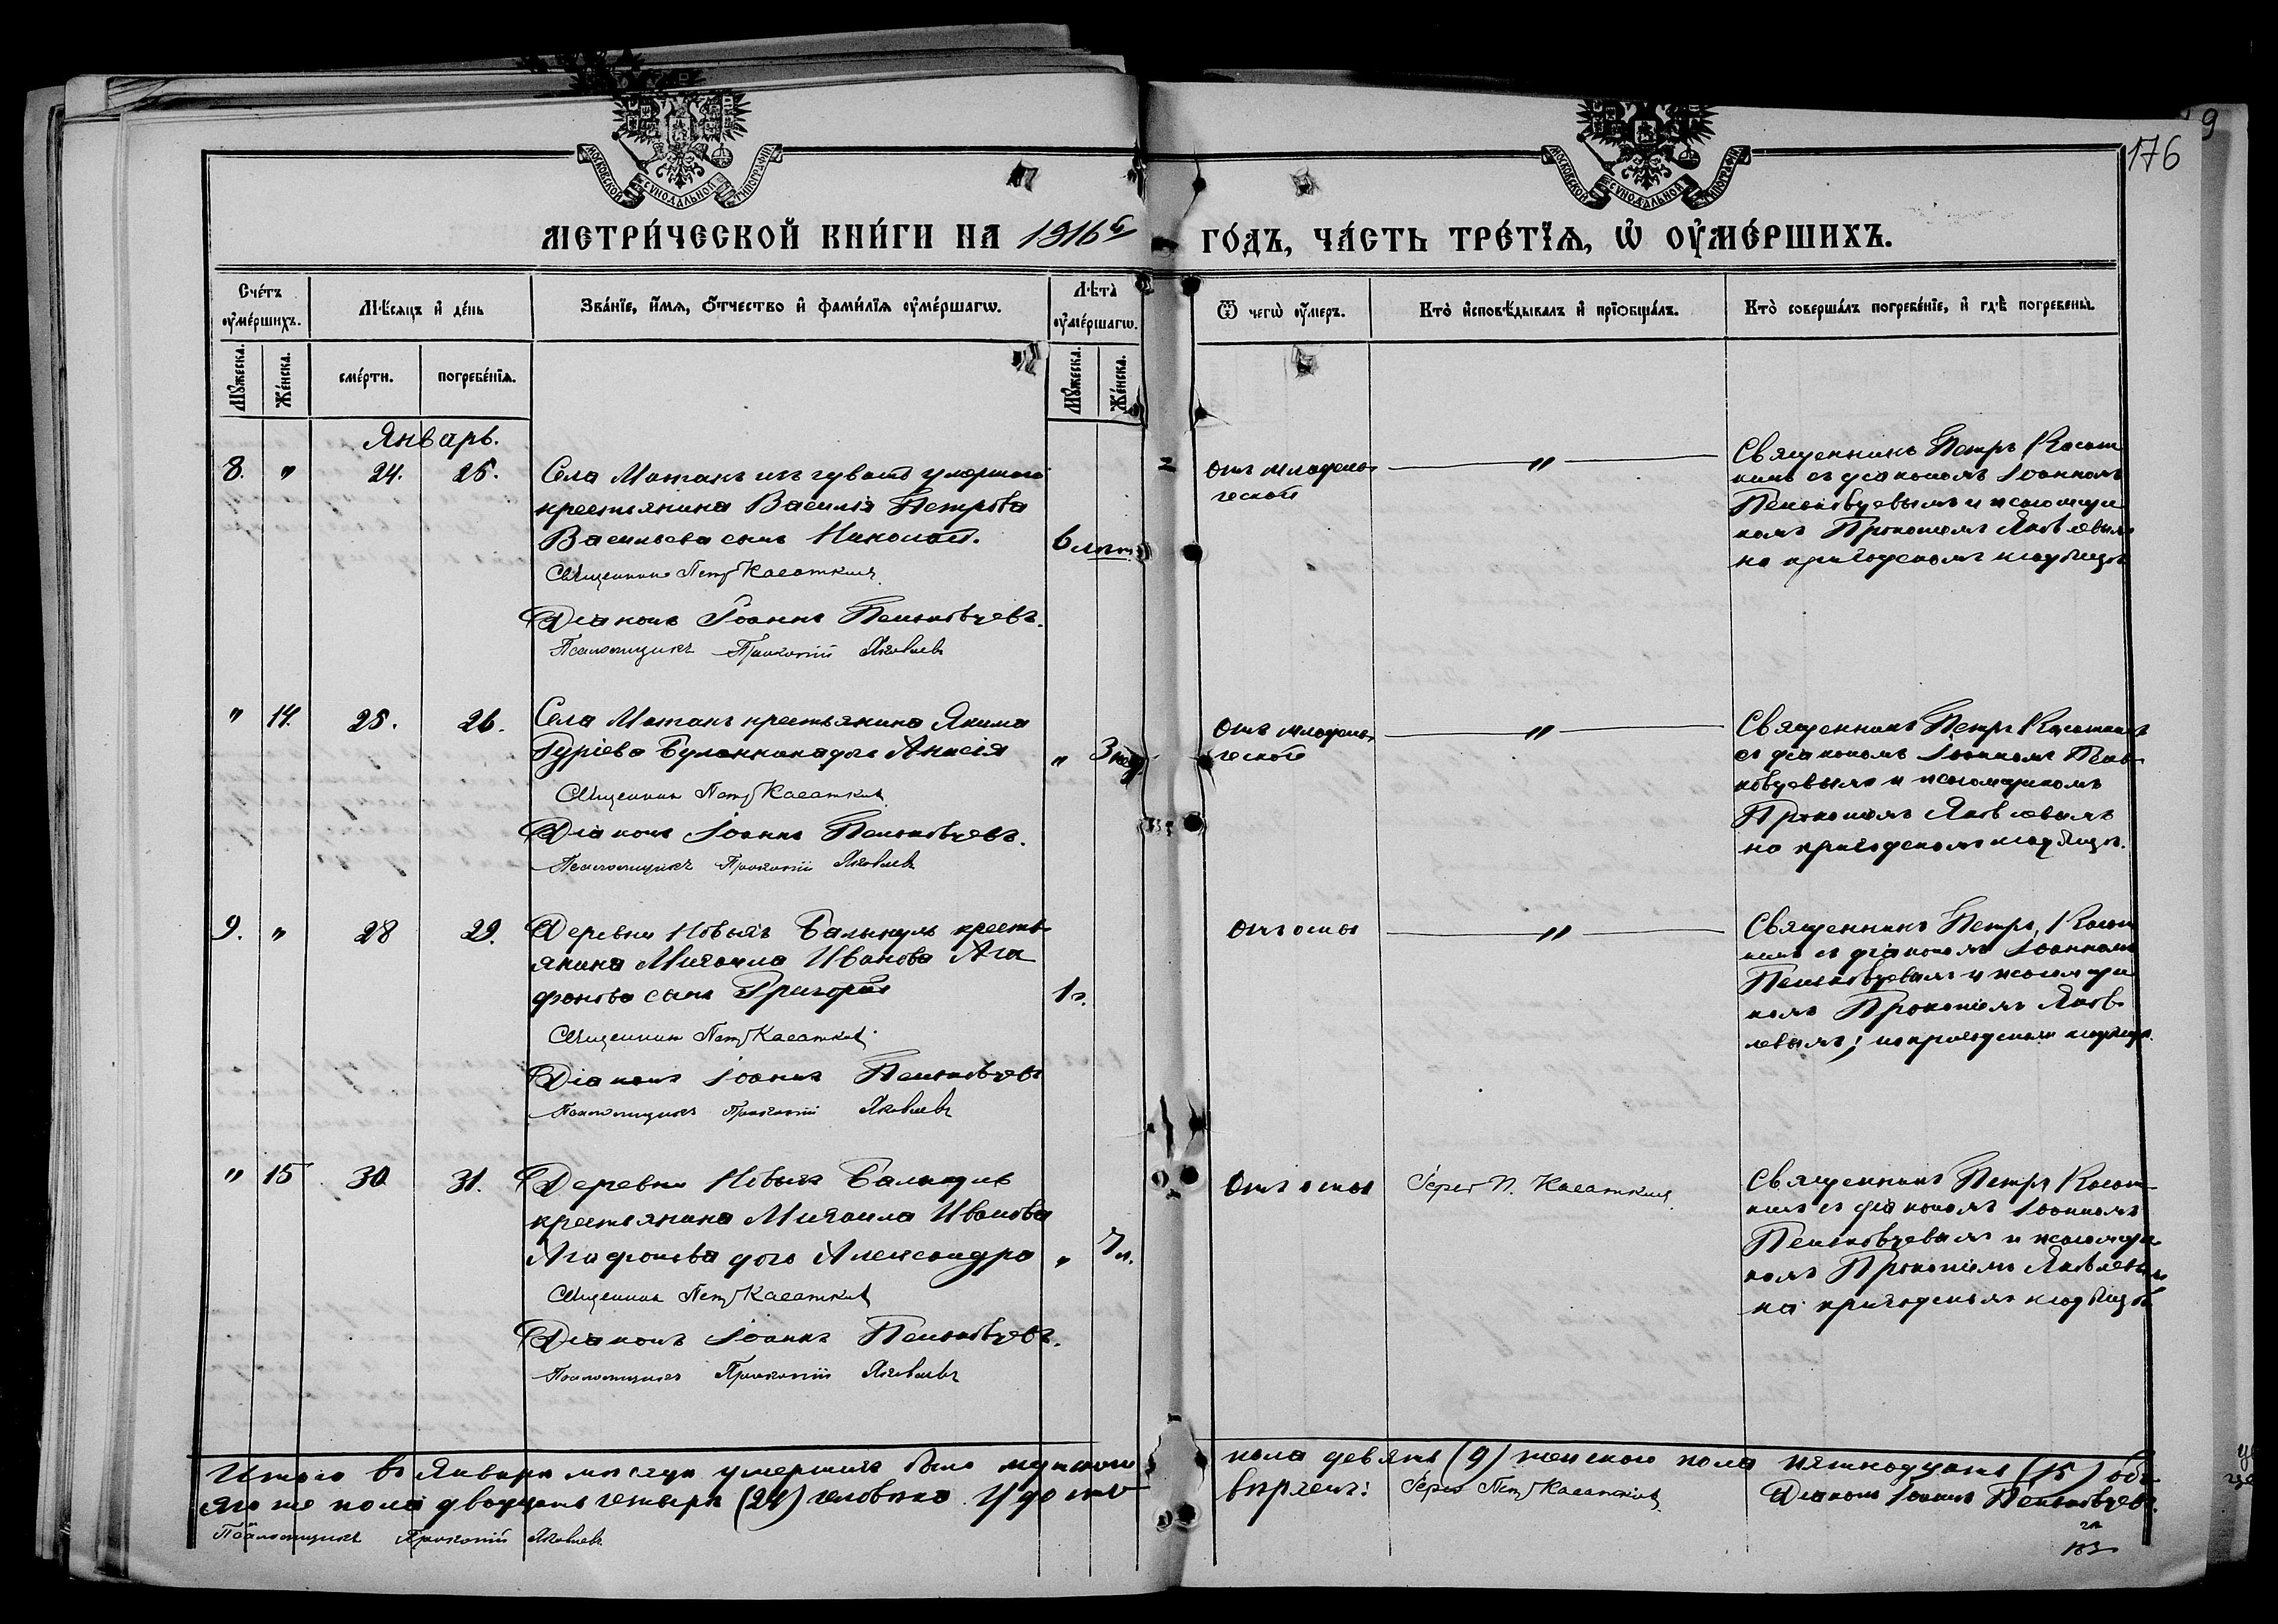 9
176
МОСКОВСКОЙ СѴНОДАЛЬНОЙ ТИПОГРАФІИ
МОСКОВСКОЙ СѴНОДАЛЬНОЙ ТИПОГРАФІИ
МЕТРИ́ЧЕСКОЙ КНИ́ГИ НА 1916й ГО́ДЪ, ЧА́СТЬ ТРЕ́ТЇѦ, Ѡ҆ ОУ҆МЕ́РШИХЪ.
Сче́тъ оу҆ме́ршихъ.
Мꙋ́жеска.
Же́нска.
Мѣ́сяцъ и҆ де́нь
сме́рти.
погребе́нїѧ.
Зва́нїе, и҆́мѧ, ѻ҆́тчество и҆ фами́лїѧ оу҆ме́ршагѡ.
Лѣ̀та оу҆ме́ршагѡ.
Мꙋ́жеска.
Же́нска.
Ѿ чегѡ̀ оу҆́меръ.
Кто̀ и҆сповѣ́дывалъ и҆ прїѻбща́лъ.
Кто̀ соверша́лъ погребе́нїе, и҆ гдѣ̀ погребены̀.
Январь.
8. " 24. 25.
Села Матакъ изъ чувашъ умершаго
крестьянина Василія Петрова
Васильева сынъ Николай.
6 лѣтъ
Священникъ Петръ Касаткин
Діаконъ Іоаннъ Пеньковцевъ.
Псаломщикъ Прокопій Яковлевъ
отъ младен-
ческой
"
Священникъ Петръ Касат
кинъ съ діакономъ Іоанномъ
Пеньковцевымъ и псаломщи
комъ Прокопіемъ Яковлевым
на приходскомъ кладбищѣ
" 14. 25. 26.
Села Матакъ крестьянина Якима
Гуріева дочь Анисія
" 3 нед
Священникъ Петръ Касаткин
Діаконъ Іоаннъ Пеньковцевъ.
Псаломщикъ Прокопій Яковлевъ
Отъ младен-
ческой
"
Священникъ Петръ Касаткинъ
съ діакономъ Іоанномъ Пень-
ковцевымъ и псаломщикомъ
Прокопіемъ Яковлевымъ
на приходскомъ кладбищѣ.
9. " 28 29.
Деревни Новыхъ кресть-
янина Михаила Иванова Ага
фонова сынъ Григорій
1 г.
Священникъ Петръ Касаткин
Діаконъ Іоаннъ Пеньковцевъ
Псаломщикъ Прокопій Яковлевъ
Отъ оспы
"
Священникъ Петръ Касат
кинъ съ діакономъ Іоанномъ
Пеньковцевымъ и псаломщи
комъ Прокопіемъ Яков-
левымъ; на приходскомъ кладбищѣ.
" 15 30 31.
Деревни Новыхъ
крестьянина Михаила Иванова
Агафонова дочь Александра
" 7 л.
Священникъ Петръ Касаткин
Діаконъ Іоаннъ Пеньковцевъ.
Псаломщикъ Прокопій Яковлевъ
Отъ оспы
Іерей П. Касаткин
Священникъ Петръ Касат-
кинъ съ діакономъ Іоанномъ
Пеньковцевымъ и псаломщи
комъ Прокопіемъ Яковлевымъ
на приходскомъ кладбищѣ
Итого въ Январѣ мѣсяцѣ умершихъ было мужского пола девять (9) женскаго пола пятнадцать (15) обо-
его же пола двадцать четыре (24) человѣка. Удостовѣряемъ: Іерей Петръ Касаткин Діаконъ Іоаннъ Пеньковцевъ.
Псаломщикъ Прокопій Яковлевъ